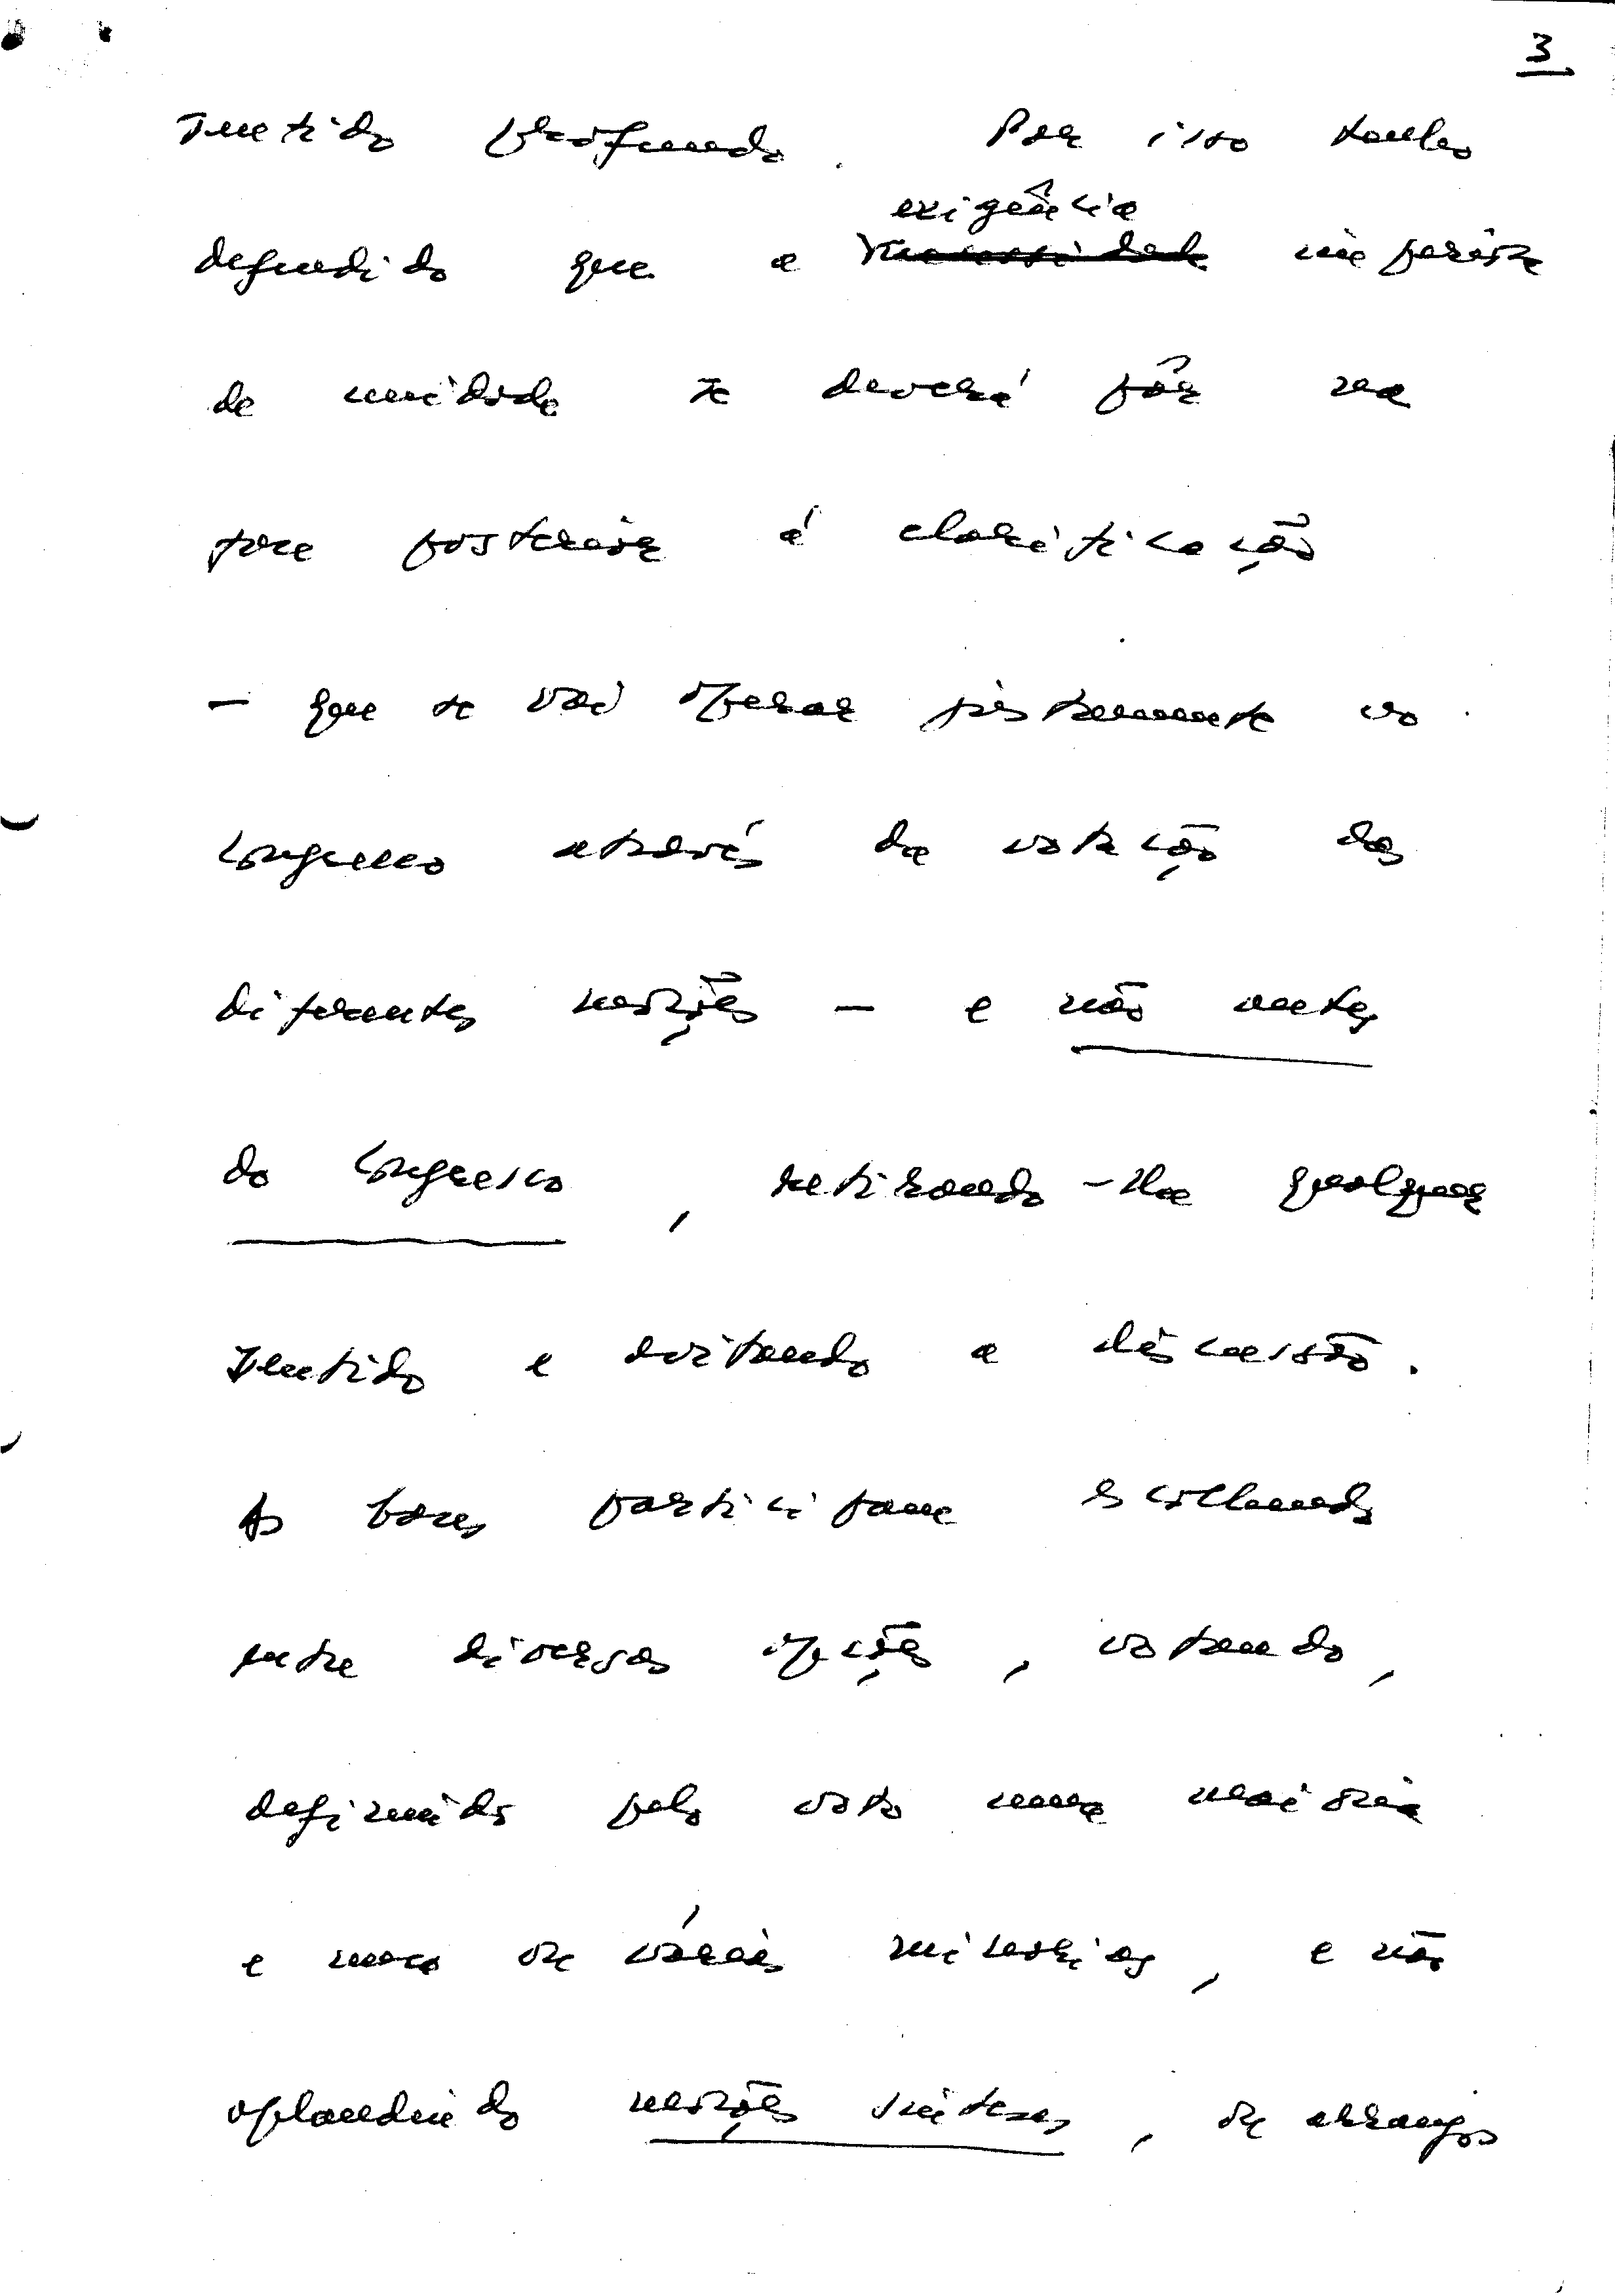 3
sentido profundo. Por isso tenho
exigência
defendido que a necessidade imperiosa
de unidade se deverá pôr na
fase posterior à clarificação
– que se vai operar justamente no
Congresso através da votação das
diferentes moções – e não antes
do Congresso, retirando-lhe qualquer
sentido e evitando a discussão.
As bases participam escolhendo
entre diversas opções, votando,
definindo pelo voto uma maioria
e uma ou várias minorias, e não
aplaudindo moções sínteses, ou arranjos